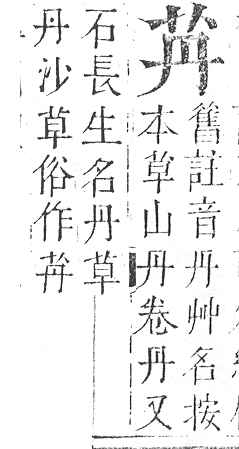 舊註音丹艸名按
本草山丹卷丹又
石長生名丹草
丹沙草俗作